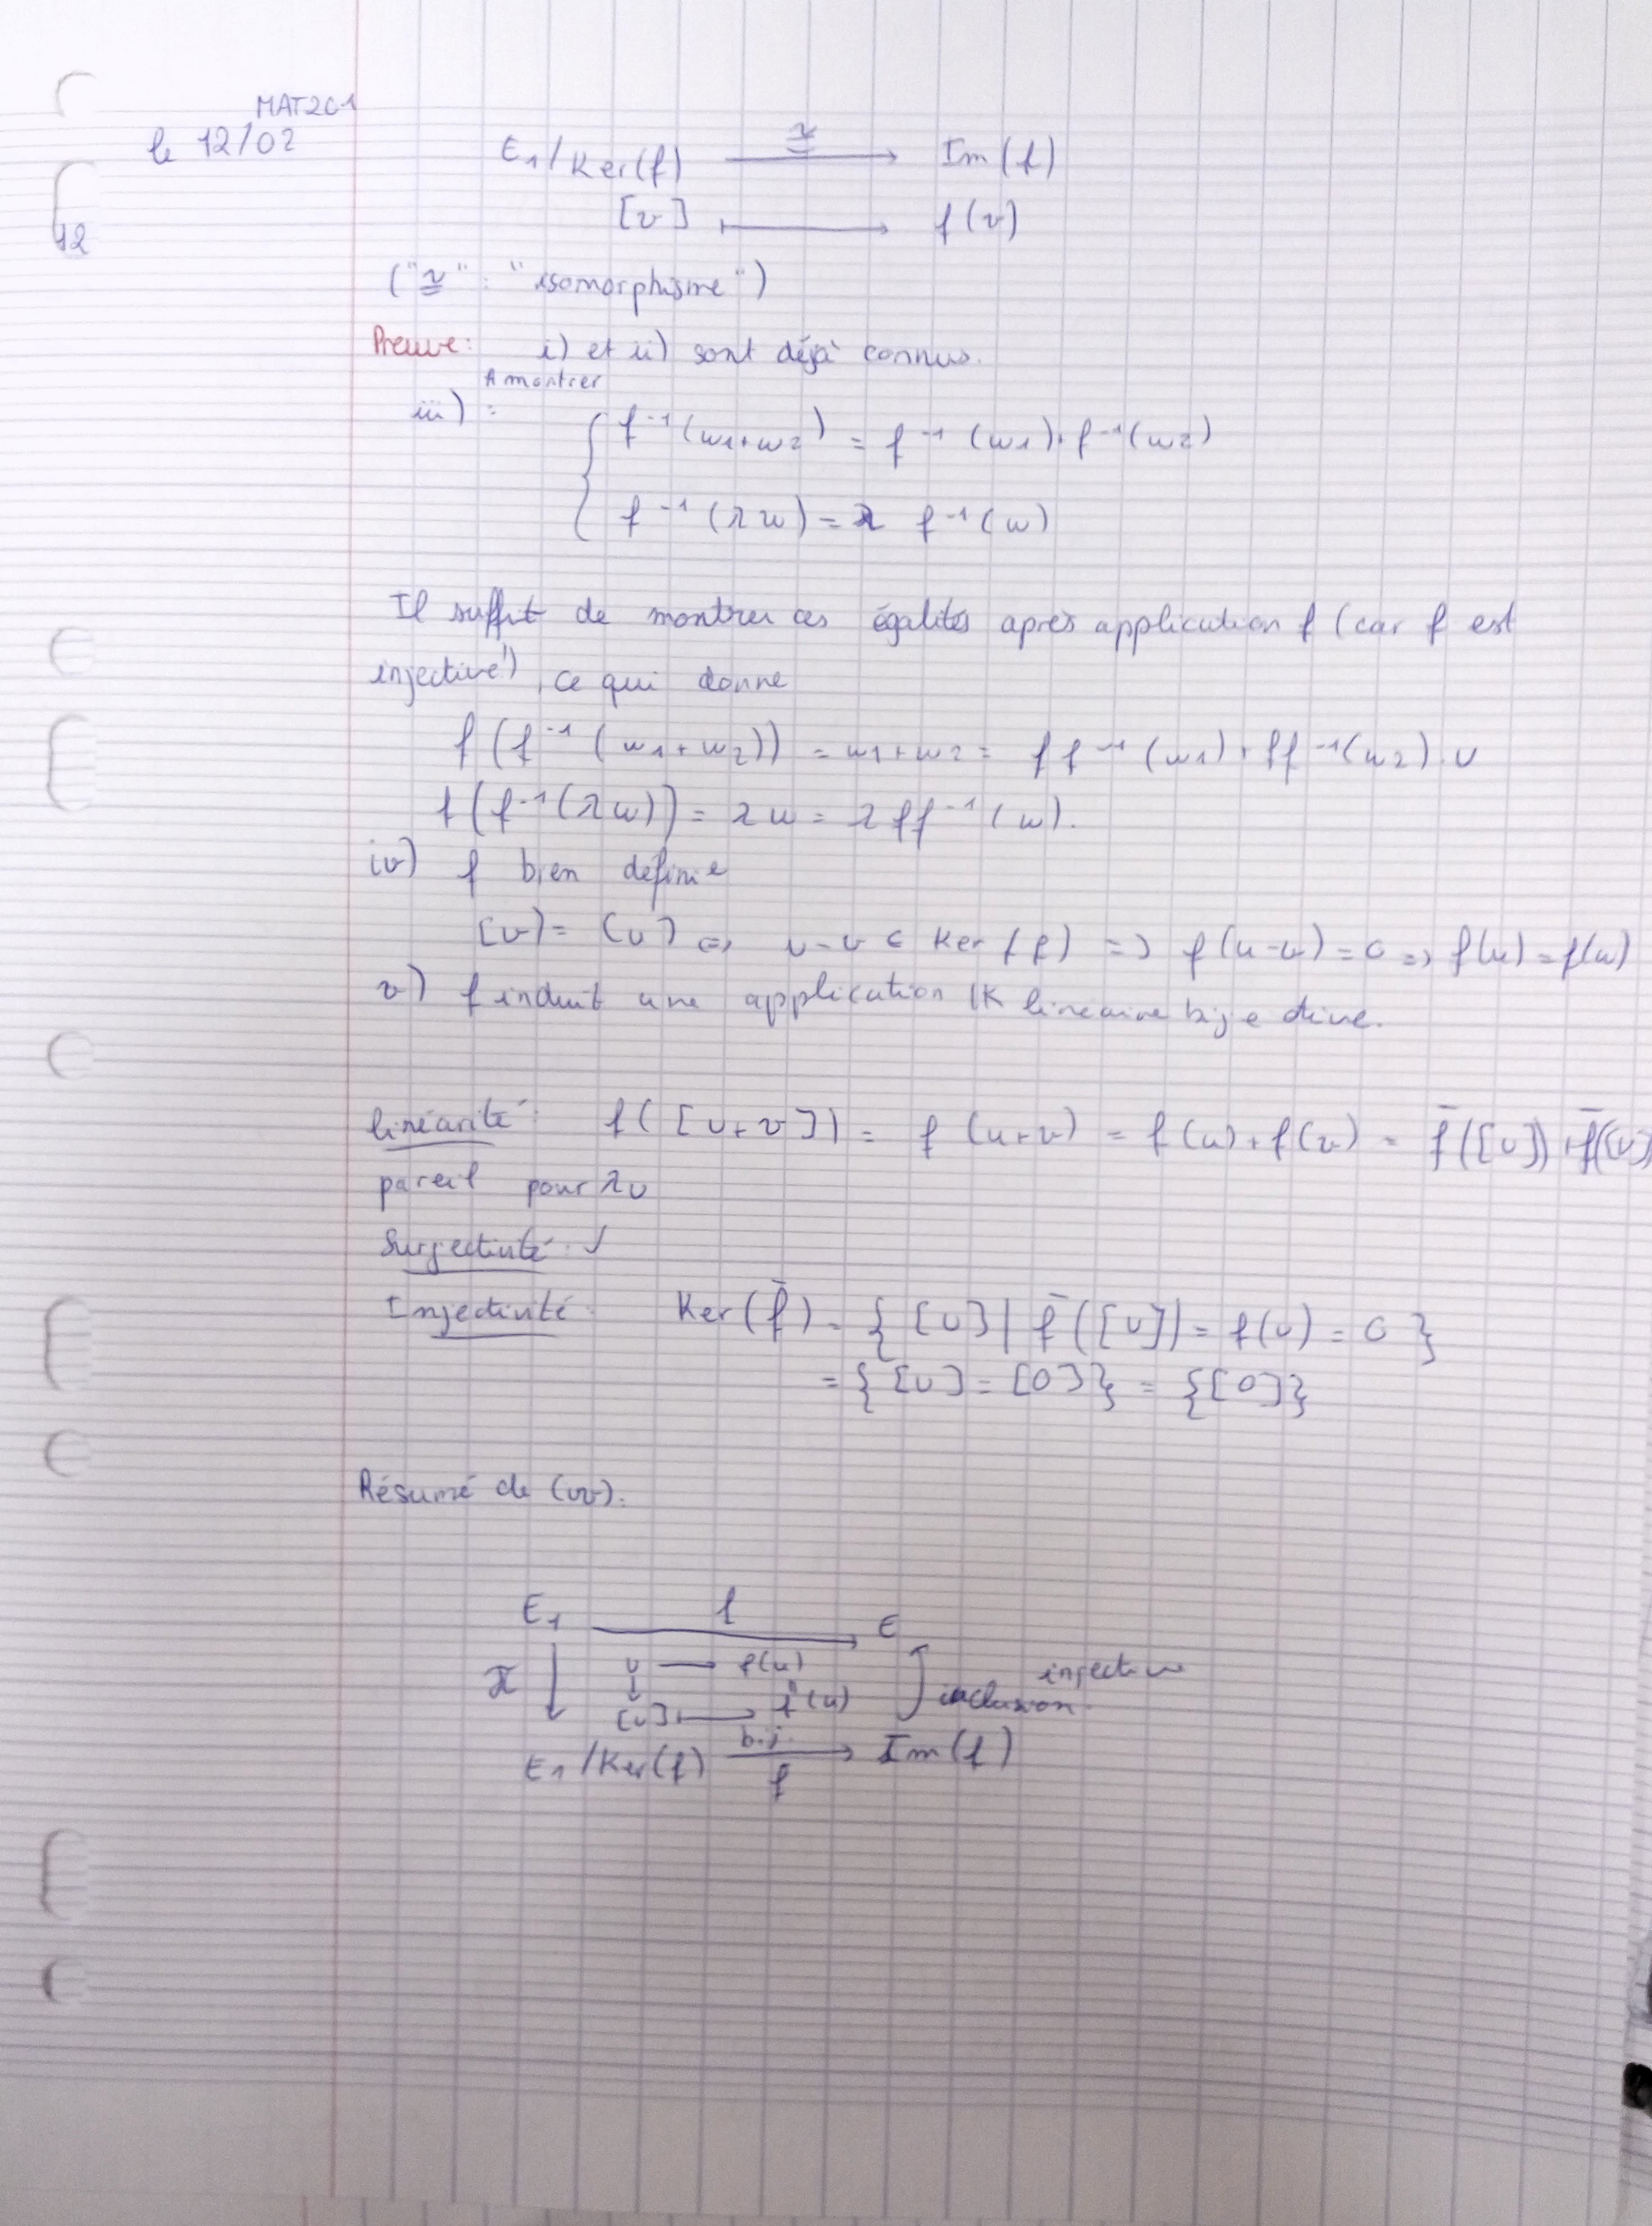 MAT201
le 12/02
E1/Ker(f) ≅→ Im(f)
12
[v] ↦ f(v)
("≅" : "isomorphisme")
Preuve: i) et ii) sont déjà connus.
A montrer
iii) :
{ f⁻¹(w1+w2) = f⁻¹(w1)+f⁻¹(w2)
f⁻¹(λw) = λ f⁻¹(w)
Il suffit de montrer ces égalités après application f (car f est
injective!), ce qui donne
f(f⁻¹(w1+w2)) = w1+w2 = ff⁻¹(w1)+ff⁻¹(w2). v
f(f⁻¹(λw)) = λw = λff⁻¹(w).
iv) f bien définie
[v] = [u] ⇔ u-v ∈ Ker(f) ⇒ f(u-v)=0 ⇒ f(u)=f(v)
v) f induit une application IK linéaire bijective.
linéarité: f([u+v]) = f(u+v) = f(u)+f(v) = f̄([u])+f̄([v]
pareil pour λu
Surjectivité: ✓
Injectivité: Ker(f̄) = {[u] | f̄([u]) = f(u) = 0}
= {[u] = [0]} = {[0]}
Résumé de (iv).
E1 f→ E
π ↓ u → f(u)
↓ injective
[u] ↦ f(u) inclusion
bij.
E1/Ker(f) → Im(f)
f